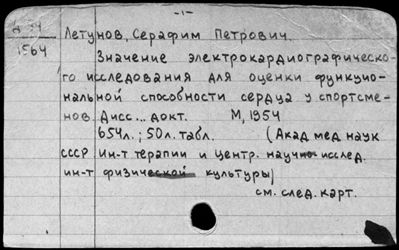 -1-
Летунов, Серафим Петрович.
1564
Значение электрокардиографическо-
го исследования для оценки функцио-
нальной способности сердца у спортсме-
нов. Дисс... докт. М, 1954
654л.; 50л. табл. (Акад мед наук
СССР. Ин-т терапии и центр. научно исслед.
ин-т физической культуры)
см. след. карт.